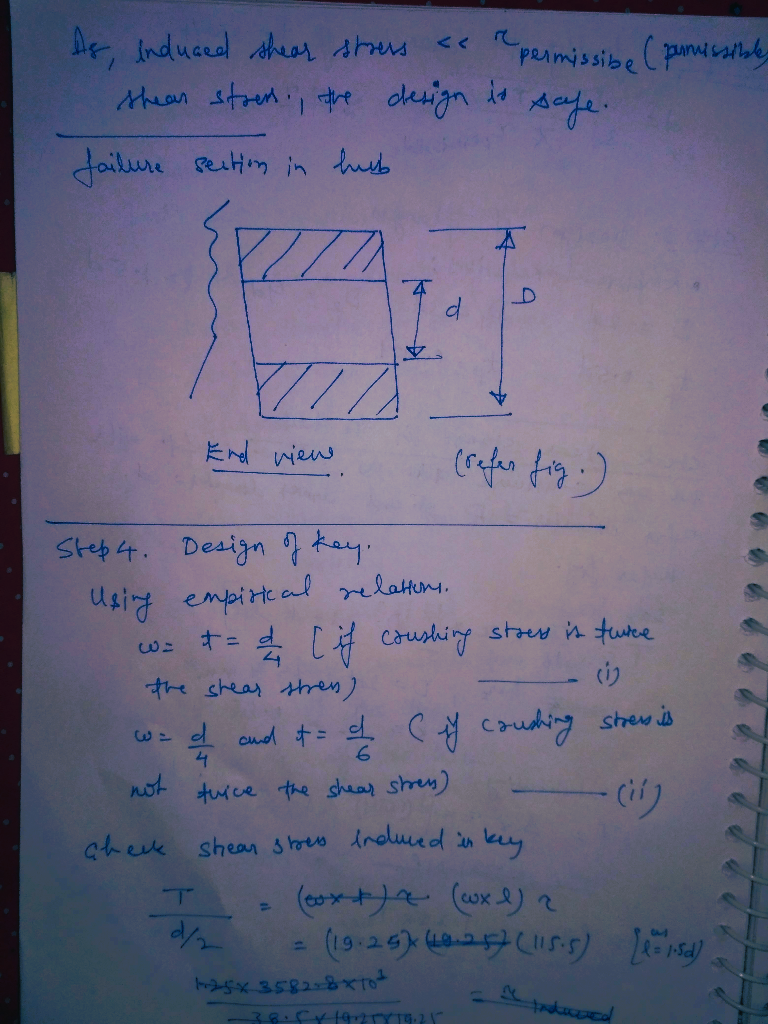 As, induced shear stress << τ permissibe (permissible
shear stress., the design is safe.
failure section in hub
d
D
End view.
(refer fig.)
Step 4. Design of key.
Using empirical relations.
w = t = d/4 [if crushing stress is twice
the shear stress) (i)
w = d/4 and t = d/6 (if crushing stress is
not twice the shear stress) (ii)
Check shear stress induced in key
T/d/2 = (w x t) τ (w x l) τ
= (19.25) x (19.25) (115.5) [as l = 1.5d)
1.25 x 3582.8 x 10³ / 38.5 x 19.25 x 19.25 = τ induced